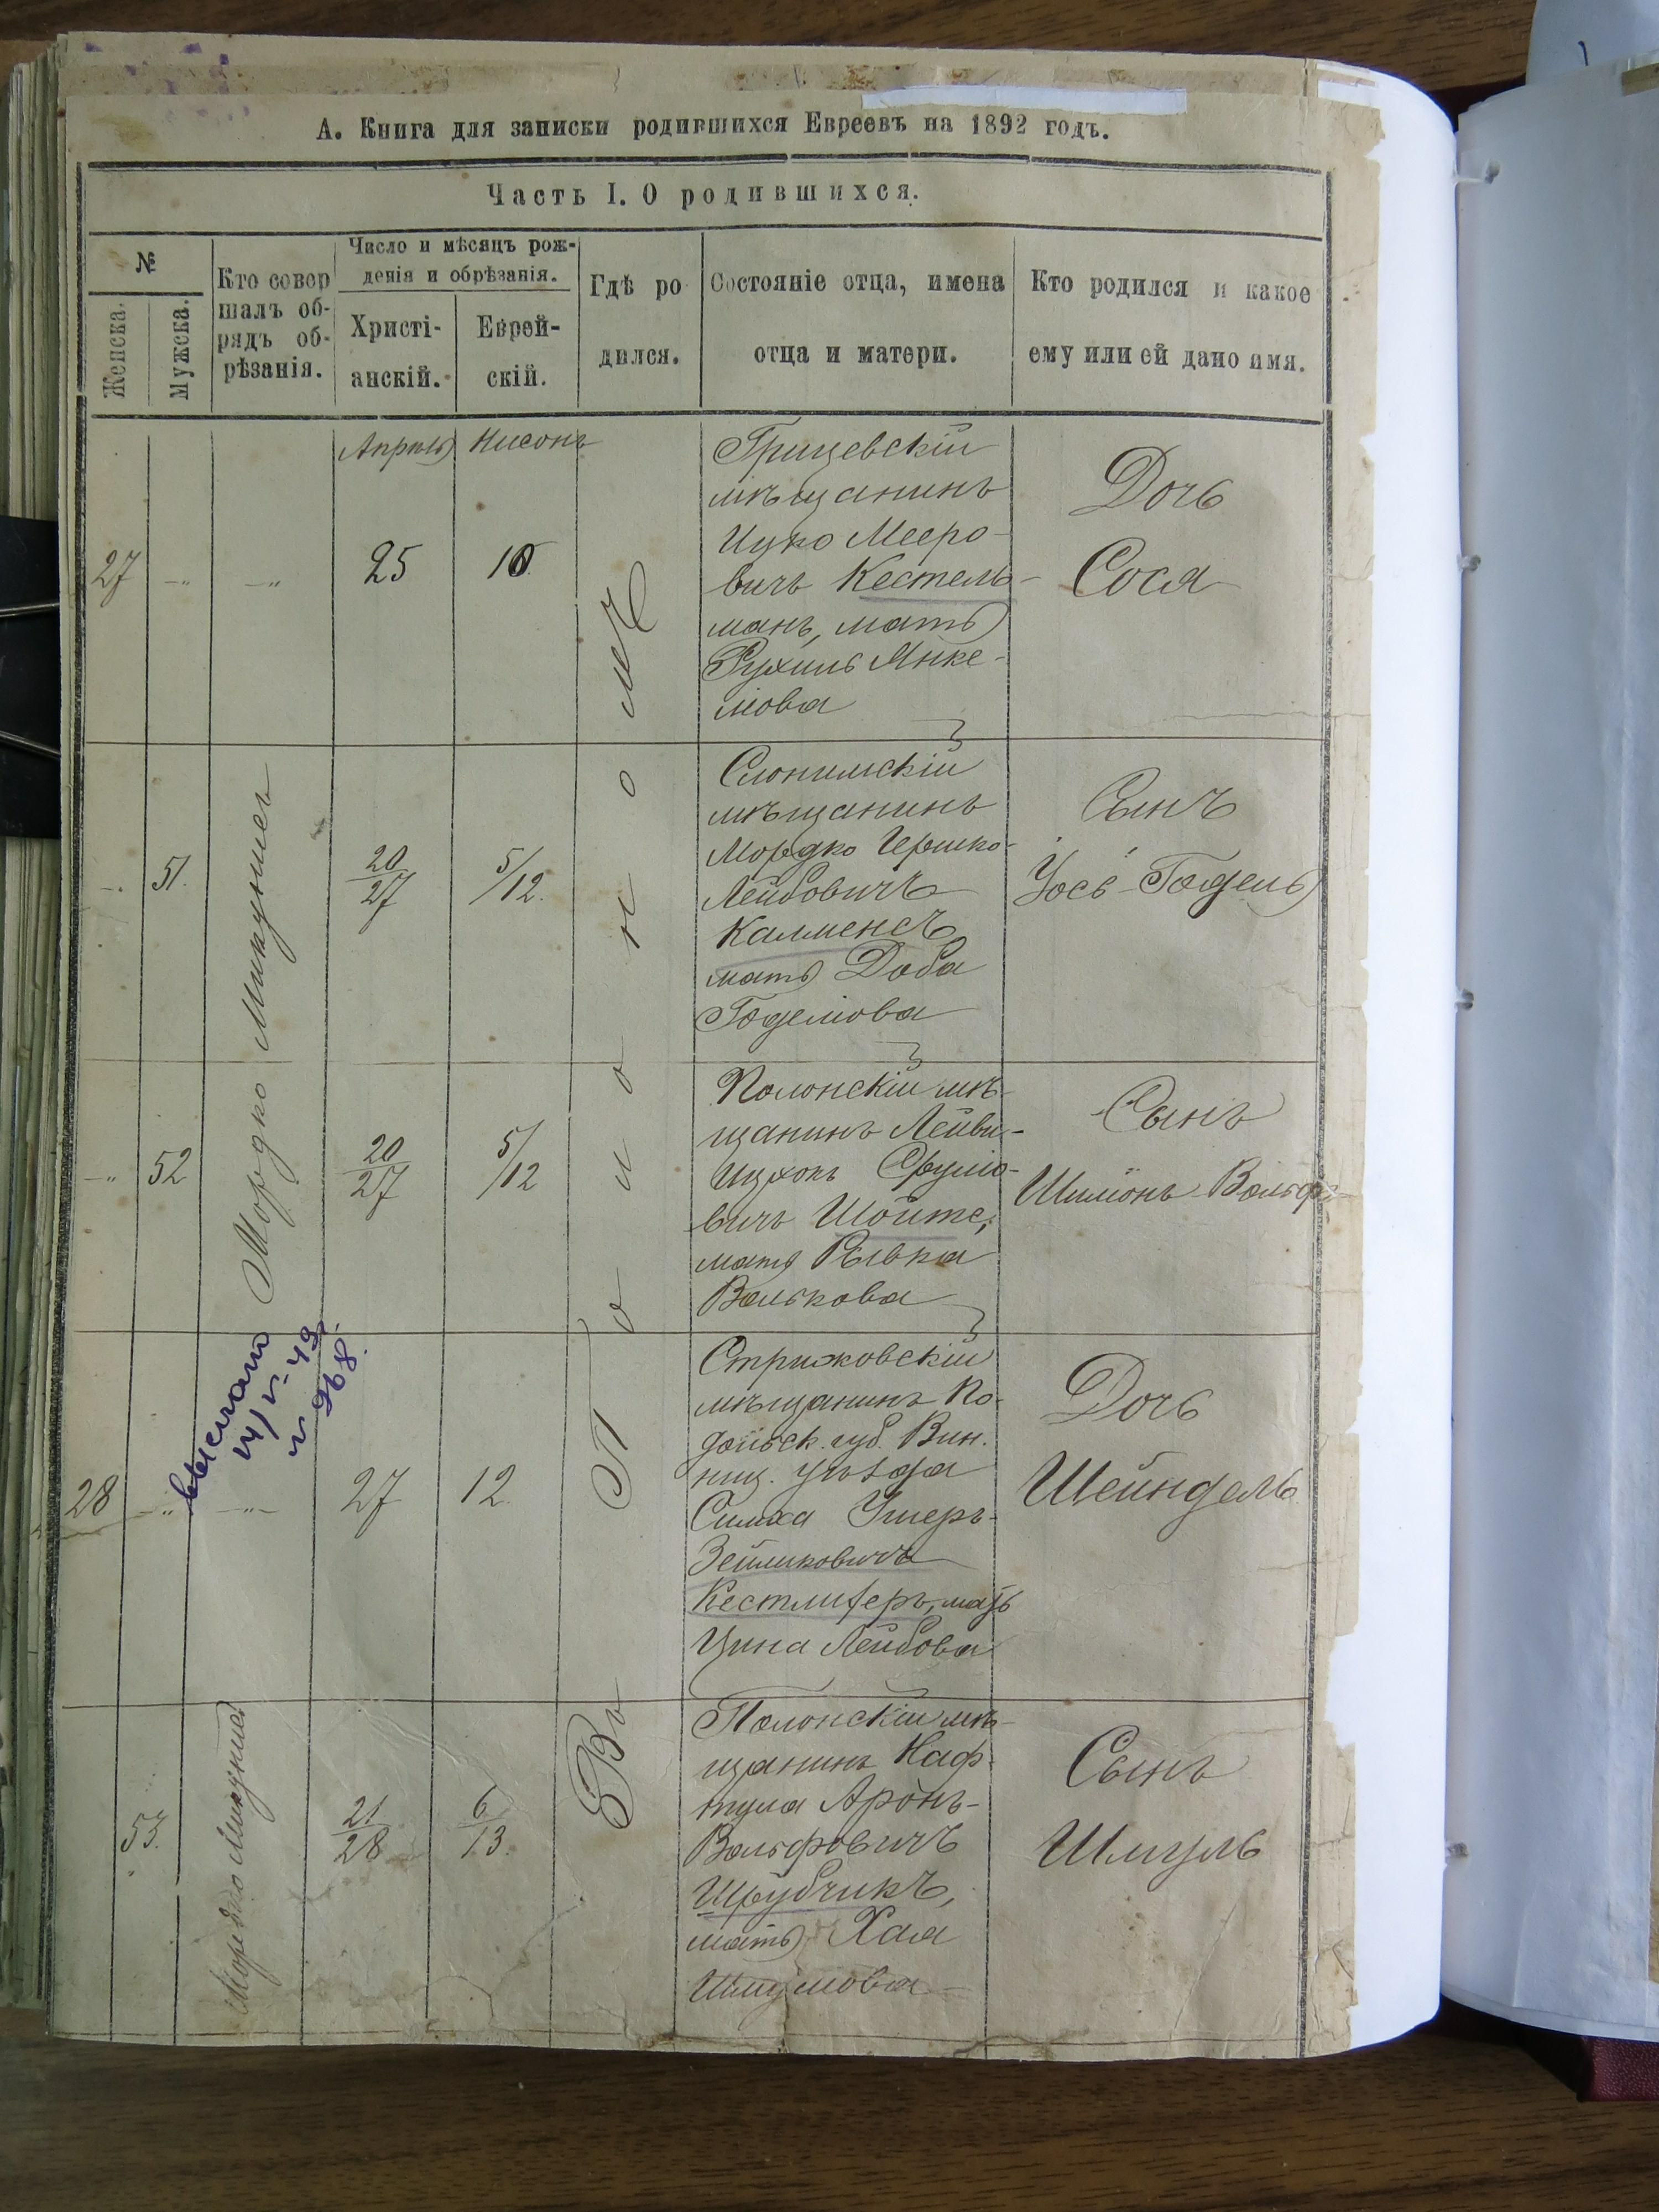 А. Книга для записки родившихся Евреевъ на 1892 годъ.
Часть I. О родившихся.
№
Женска.
Мужска.
Кто совер
шалъ об-
рядъ об-
рѣзанія.
Число и мѣсяцъ рож-
денія и обрѣзанія.
Христі-
анскій.
Еврей-
скій.
Гдѣ ро
дился.
Состояніе отца, имена
отца и матери.
Кто родился и какое
ему или ей дано имя.
Апрѣль
Нисонъ
Въ Полонномъ
27
25
10
Грицевскій
мѣщанинъ
Ицко Мееро-
вичъ Кестель-
манъ, мать
Рухиль Янке-
лова
Дочь
Сося
51.
Мордко
20
27
5/12.
Слонимскій
мѣщанинъ
Мордко Гершко-
Лейбовичъ
Калменсъ
мать Доба
Годелова
Сынъ
Уосъ-Годель
52
20
27
5/12
Полонскій мѣ-
щанинъ Лейви-
Ицхокъ Сруло-
вичъ Шойте,
мать Ривка
Волькова
Сынъ
Шимонъ-Вольф
выслано
14/V-49
N 968.
28
27
12.
Стрижовскій
мѣщанинъ По-
дольск. губ. Вин.
ниц. уѣзда
Симха Ушеръ-
Зейликовичъ
Кестлиферъ, мать
Цина Лейбова
Дочь
Шейндель
53.
Мордко
21
28
6
13.
Полонскій мѣ-
щанинъ Наф-
тула Аронъ-
Вольфовичъ
Шрубчикъ,
мать Хая
Шмулова
Сынъ
Шмуль